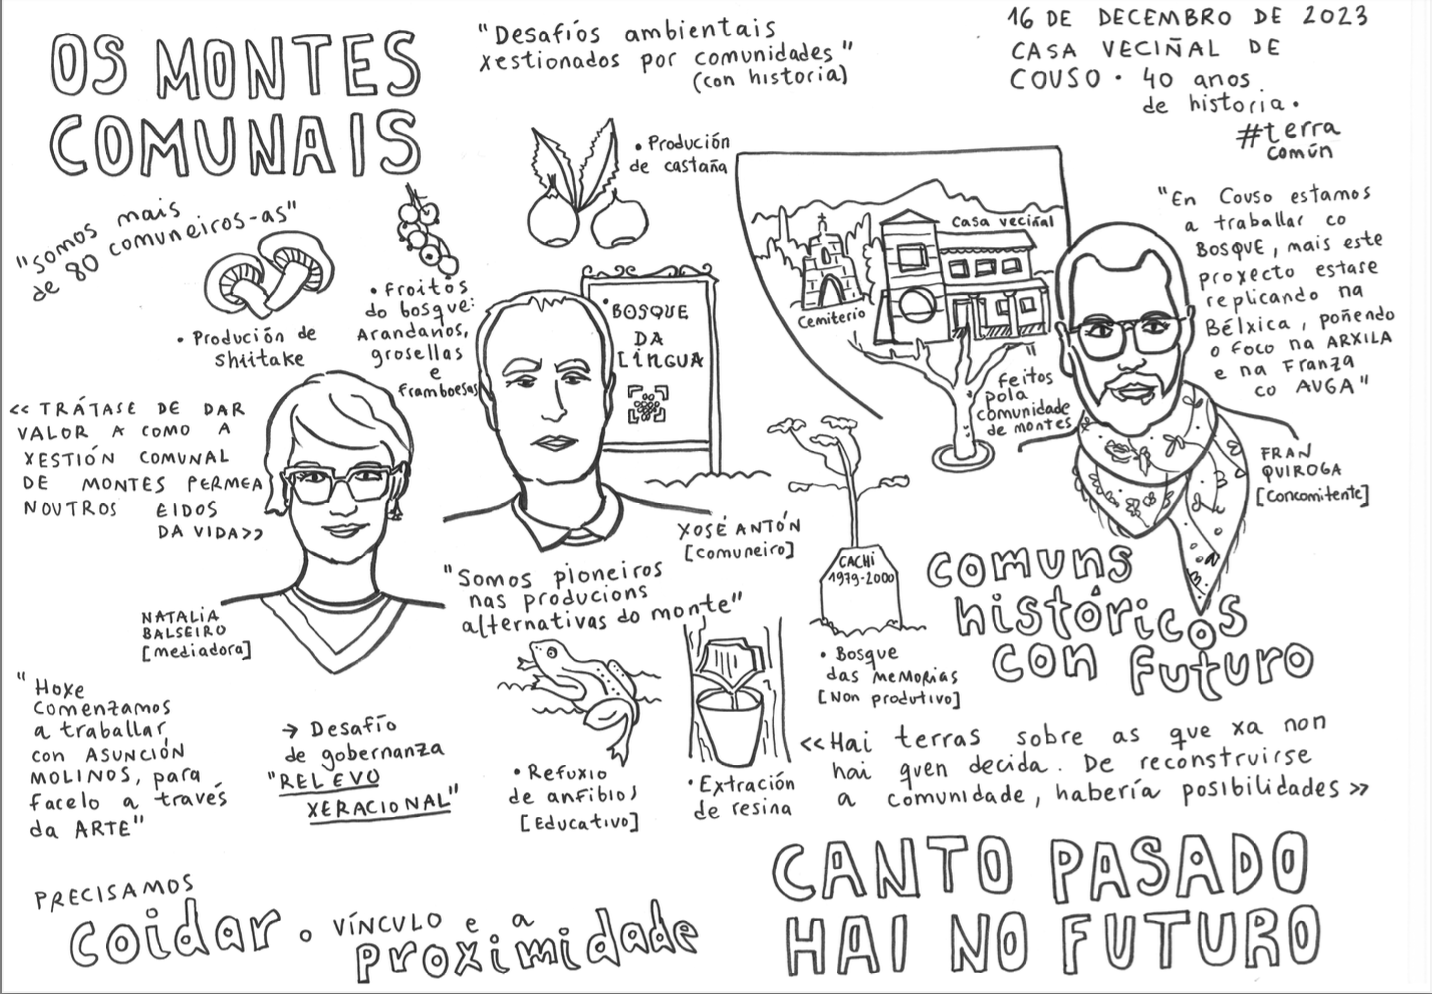 OS MONTES
COMUNAIS
"Desafíos ambientais
xestionados por comunidades"
(con historia)
16 DE DECEMBRO DE 2023
CASA VECIÑAL DE
COUSO · 40 anos
de historia.
#terra
común
"Somos mais
de 80 comuneiros-as"
• Produción de
shiitake
• Froitos
do bosque:
Arandanos,
grosellas
e
framboesas
• Produción
de castaña
• BOSQUE
DA
LINGUA
Casa veciñal
Cemiterio
"feitos
pola
comunidade
de montes
"En Couso estamos
a traballar co
BOSQUE, mais este
proxecto estase
replicando na
Bélxica, poñendo
o foco na ARXILA
e na Franza
co AUGA"
FRAN
QUIROGA
[Concomitente]
<< TRÁTASE DE DAR
VALOR A COMO A
XESTIÓN COMUNAL
DE MONTES PERMEA
NOUTROS EIDOS
DA VIDA>>
NATALIA
BALSEIRO
[mediadora]
XOSÉ ANTÓN
[comuneiro]
"Somos pioneiros
nas producions
alternativas do monte"
CACHI
1979-2000
• Bosque
das MEMORIAS
[Non produtivo]
comuns
históricos
con futuro
"Hoxe
comenzamos
a traballar
con ASUNCIÓN
MOLINOS, para
facelo a través
da ARTE"
→ Desafío
de gobernanza
"RELEVO
XERACIONAL"
• Refuxio
de anfibios
[Educativo]
• Extración
de resina
<<Hai terras sobre as que xa non
hai quen decida. De reconstruirse
a comunidade, habería posibilidades>>
PRECISAMOS
coidar · VÍNCULO e a
proximidade
CANTO PASADO
HAI NO FUTURO